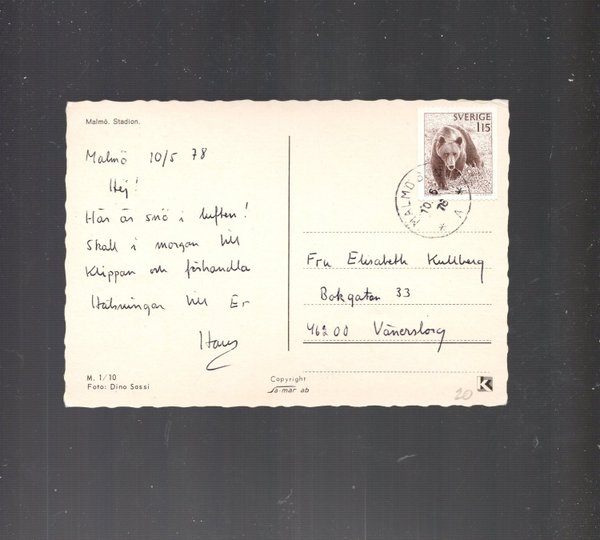 Malmö. Stadion.
Malmö 10/5 78
Hej!
Här är snö i luften!
Skall i morgon till
Klippan och förhandla
Hälsningar till Er
Hans
M. 1/10
Foto: Dino Sassi
Copyright
Sa-mar ab
SVERIGE
115
MALMÖ
10. 78
A
Fru Elisabeth Kullberg
Bokgatan 33
46200 Vänersborg
20
K